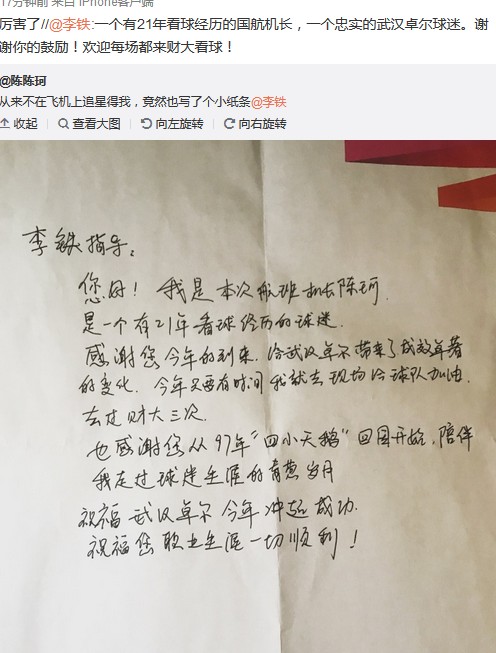 17分钟前 来自 iPhone客户端
厉害了//@李铁:一个有21年看球经历的国航机长，一个忠实的武汉卓尔球迷。谢
谢你的鼓励！欢迎每场都来财大看球！
@陈陈珂
从来不在飞机上追星得我，竟然也写了个小纸条@李铁
收起 查看大图 向左旋转 向右旋转
李铁指导：
您好！我是本次航班机长陈珂.
是一个有21年看球经历的球迷.
感谢您今年的到来.给武汉卓尔带来了成效卓著
的变化.今年只要有时间我就去现场给球队加油.
去过财大三次.
也感谢您从97年"四小天鹅"回国开始,陪伴
我走过球迷生涯的青葱岁月
祝福武汉卓尔今年冲超成功.
祝福您职业生涯一切顺利！